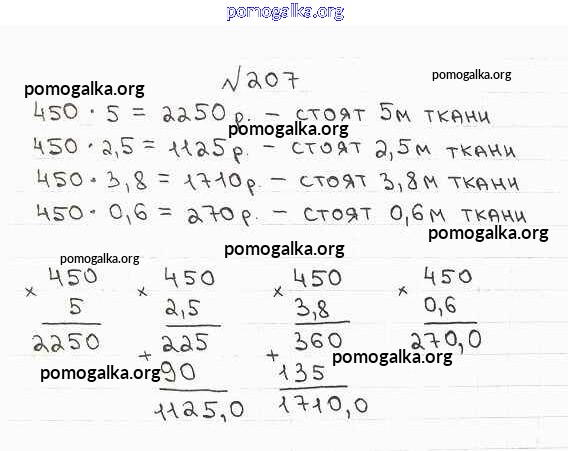 pomogalka.org
№207
pomogalka.org
pomogalka.org
450 · 5 = 2250 р. – стоят 5м ткани
pomogalka.org
450 · 2,5 = 1125 р. – стоят 2,5м ткани
450 · 3,8 = 1710 р. – стоят 3,8м ткани
450 · 0,6 = 270 р. – стоят 0,6м ткани
pomogalka.org
pomogalka.org
pomogalka.org
× 450 × 450 × 450 × 450
5 2,5 3,8 0,6
2250 225 360 270,0
+ +
pomogalka.org
pomogalka.org
90 135
1125,0 1710,0